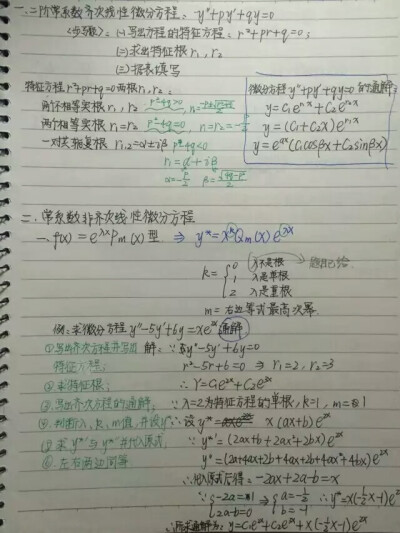 一.二阶常系数齐次线性微分方程: y″+py′+qy=0
<步骤>: (一)写出方程的特征方程: r²+pr+q=0;
(二)求出特征根 r₁, r₂
(三)据表填写
特征方程 r²+pr+q=0 两根 r₁, r₂
两个不相等实根 r₁, r₂
两个相等实根 r₁=r₂
一对共轭复根 r₁,₂=α±iβ p²-4q<0
r₁=α+iβ
α=-p/2 β=√(4q-p²)/2
微分方程 y″+py′+qy=0 的通解
y=C₁e^{r₁x}+C₂e^{r₂x}
y=(C₁+C₂x)e^{r₁x}
y=e^{αx}(C₁cosβx+C₂sinβx)
二.常系数非齐次线性微分方程
一.f(x)=e^{λx}Pm(x)型 ⇒ y*=x^k Qm(x)e^{λx}
k={ 0 λ不是根
1 λ是单根
2 λ是重根
m=右边等式最高次幂
例:求微分方程 y″-5y′+6y=xe^{2x} 通解
①写出齐次方程并写出 解: ∵ y″-5y′+6y=0
特征方程; r²-5r+6=0 ⇒ r₁=2, r₂=3
②求特征根; ∴ Y=C₁e^{2x}+C₂e^{3x}
③写出齐次方程的通解 ∵ λ=2为特征方程的单根, k=1, m=1
④判断λ, k, m值, 并设y* ∴ 设 y*= x(ax+b)e^{2x}
⑤求 y*′与y*″并代入原式 ∵ y*′=(2ax+b+2ax²+2bx)e^{2x}
⑥左右两边同等 y*″=(2a+4ax+2b+4ax+2b+4ax²+4bx)e^{2x}
∴ 代入原式后得: -2ax+2a-b=x
∵ {-2a=1 2a-b=0 ⇒ {a=-1/2 b=-1 ∴ y*=x(-1/2x-1)e^{2x}
∴ 所求通解为: y=C₁e^{2x}+C₂e^{3x}+x(-1/2x-1)e^{2x}